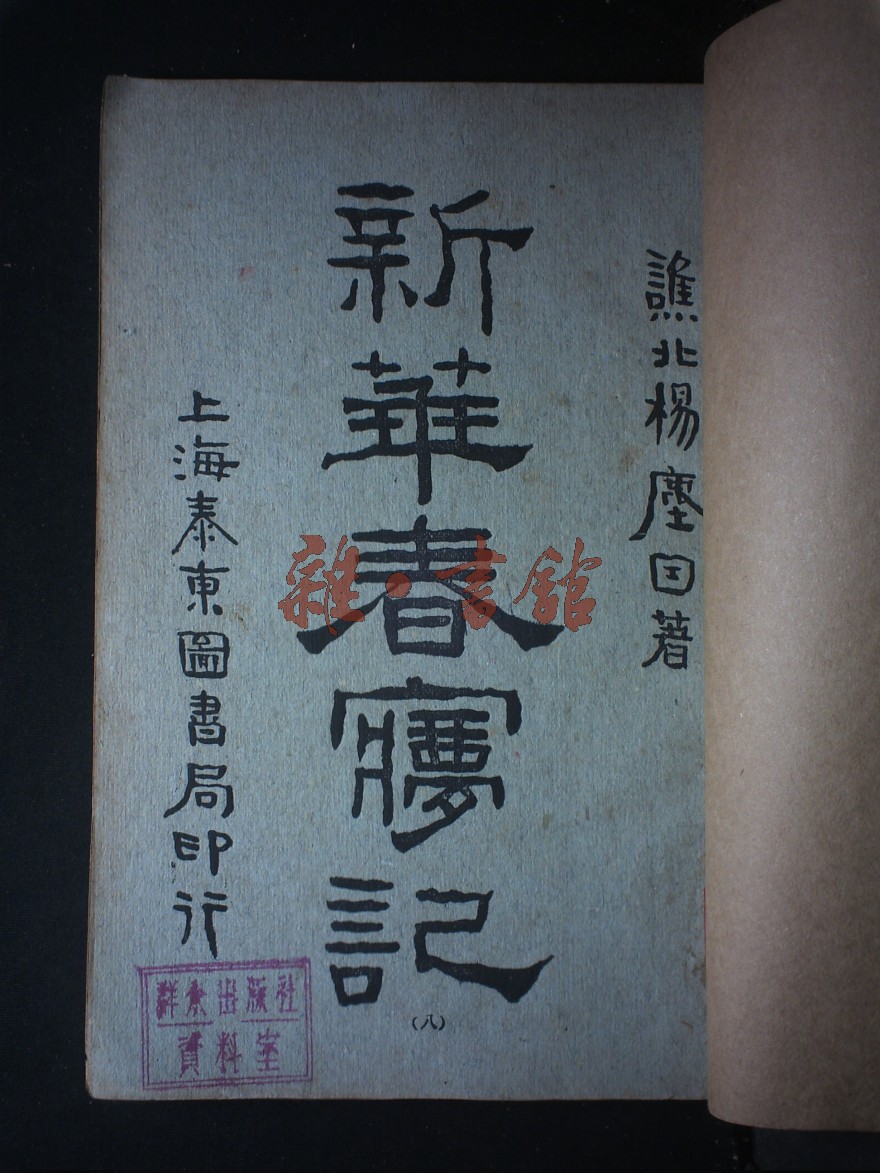 譙北楊塵因著
新華春夢記
（八）
上海泰東圖書局印行
群众出版社
資料室
雜·书館